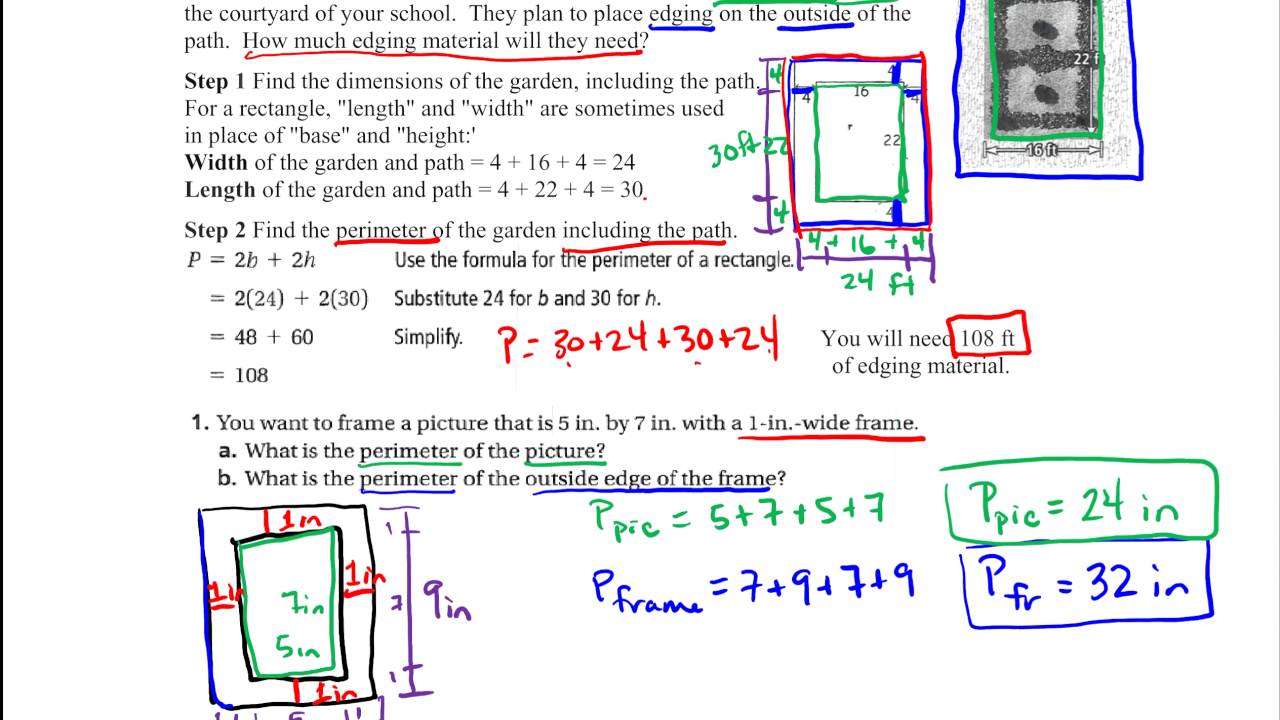 the courtyard of your school. They plan to place edging on the outside of the
path. How much edging material will they need?
Step 1 Find the dimensions of the garden, including the path.
For a rectangle, "length" and "width" are sometimes used
in place of "base" and "height:'
Width of the garden and path = 4 + 16 + 4 = 24
Length of the garden and path = 4 + 22 + 4 = 30.
4
4
16
4
4
22
30ft 22
4
4
4 + 16 + 4
24 ft
22 f
16 ft
Step 2 Find the perimeter of the garden including the path.
P = 2b + 2h Use the formula for the perimeter of a rectangle.
= 2(24) + 2(30) Substitute 24 for b and 30 for h.
= 48 + 60 Simplify. P = 30+24+30+24
= 108
You will need 108 ft
of edging material.
1. You want to frame a picture that is 5 in. by 7 in. with a 1-in.-wide frame.
a. What is the perimeter of the picture?
b. What is the perimeter of the outside edge of the frame?
P pic = 5+7+5+7 P pic = 24 in
P frame = 7+9+7+9 P fr = 32 in
1in
1in
1in
7in
5in
1in
1
7
1
9in